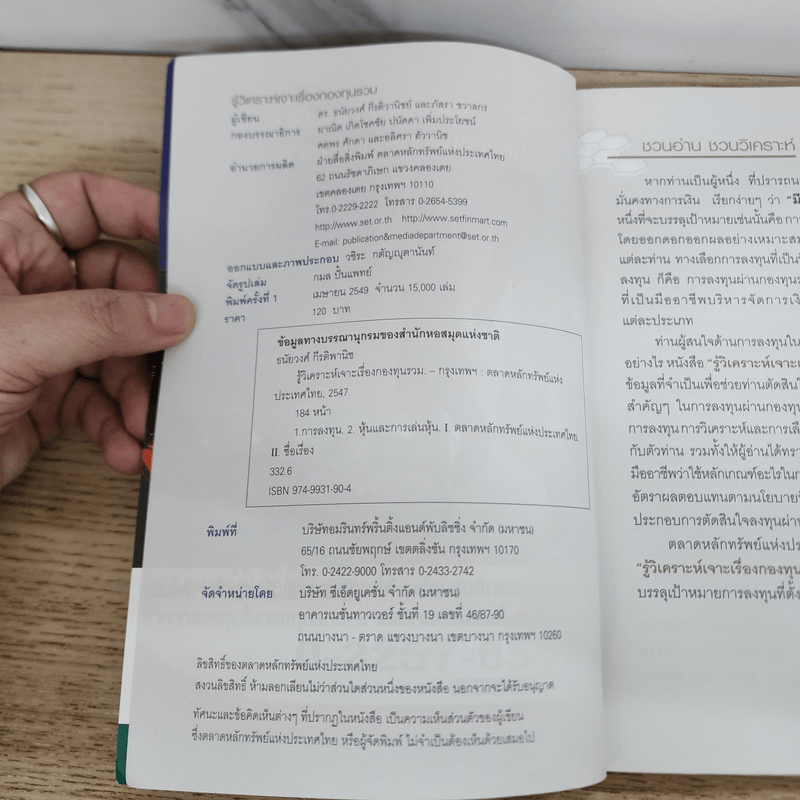 รู้วิเคราะห์เจาะเรื่องกองทุนรวม
ผู้เขียน ดร. ธนัยวงศ์ กีรติวานิชย์ และภัสรา ชวาลกร
กองบรรณาธิการ ผาณิต เกิดโชคชัย ปนัดดา เพิ่มประโยชน์
คตพร ศักดา และอลิศรา ฮัววานิช
อำนวยการผลิต ฝ่ายสื่อสิ่งพิมพ์ ตลาดหลักทรัพย์แห่งประเทศไทย
62 ถนนรัชดาภิเษก แขวงคลองเตย
เขตคลองเตย กรุงเทพฯ 10110
โทร.0-2229-2222 โทรสาร 0-2654-5399
http://www.set.or.th http://www.setfinmart.com
E-mail: publication&mediadepartment@set.or.th
ออกแบบและภาพประกอบ วชิระ กตัญญุตานันท์
จัดรูปเล่ม กมล ปั้นแพทย์
พิมพ์ครั้งที่ 1 เมษายน 2549 จำนวน 15,000 เล่ม
ราคา 120 บาท
ข้อมูลทางบรรณานุกรมของสำนักหอสมุดแห่งชาติ
ธนัยวงศ์ กีรติพานิช
รู้วิเคราะห์เจาะเรื่องกองทุนรวม. – กรุงเทพฯ : ตลาดหลักทรัพย์แห่ง
ประเทศไทย, 2547.
184 หน้า
1.การลงทุน. 2. หุ้นและการเล่นหุ้น. I. ตลาดหลักทรัพย์แห่งประเทศไทย.
II. ชื่อเรื่อง
332.6
ISBN 974-9931-90-4
พิมพ์ที่ บริษัทอมรินทร์พริ้นติ้งแอนด์พับลิชชิ่ง จำกัด (มหาชน)
65/16 ถนนชัยพฤกษ์ เขตตลิ่งชัน กรุงเทพฯ 10170
โทร. 0-2422-9000 โทรสาร 0-2433-2742
จัดจำหน่ายโดย บริษัท ซีเอ็ดยูเคชั่น จำกัด (มหาชน)
อาคารเนชั่นทาวเวอร์ ชั้นที่ 19 เลขที่ 46/87-90
ถนนบางนา - ตราด แขวงบางนา เขตบางนา กรุงเทพฯ 10260
ลิขสิทธิ์ของตลาดหลักทรัพย์แห่งประเทศไทย
สงวนลิขสิทธิ์ ห้ามลอกเลียนไม่ว่าส่วนใดส่วนหนึ่งของหนังสือ นอกจากจะได้รับอนุญาต
ทัศนะและข้อคิดเห็นต่างๆ ที่ปรากฏในหนังสือ เป็นความเห็นส่วนตัวของผู้เขียน
ซึ่งตลาดหลักทรัพย์แห่งประเทศไทย หรือผู้จัดพิมพ์ ไม่จำเป็นต้องเห็นด้วยเสมอไป
ชวนอ่าน ชวนวิเคราะห์
หากท่านเป็นผู้หนึ่ง ที่ปรารถน
มั่นคงทางการเงิน เรียกง่ายๆ ว่า "มี
หนึ่งที่จะบรรลุเป้าหมายเช่นนั้นคือ การ
โดยออกดอกออกผลอย่างเหมาะสม
แต่ละท่าน ทางเลือกการลงทุนที่เป็นที่
ลงทุน ก็คือ การลงทุนผ่านกองทุนร
ที่เป็นมืออาชีพบริหารจัดการเงิ
แต่ละประเภท
ท่านผู้สนใจด้านการลงทุนใน
อย่างไร หนังสือ "รู้วิเคราะห์เจาะเ
ข้อมูลที่จำเป็นเพื่อช่วยท่านตัดสินใ
สำคัญๆ ในการลงทุนผ่านกองทุน
การลงทุน การวิเคราะห์และการเลื
กับตัวท่าน รวมทั้งให้ผู้อ่านได้ทรา
มืออาชีพว่าใช้หลักเกณฑ์อะไรในก
อัตราผลตอบแทนตามนโยบายที่
ประกอบการตัดสินใจลงทุนผ่าน
ตลาดหลักทรัพย์แห่งประ
"รู้วิเคราะห์เจาะเรื่องกองทุน
บรรลุเป้าหมายการลงทุนที่ตั้ง